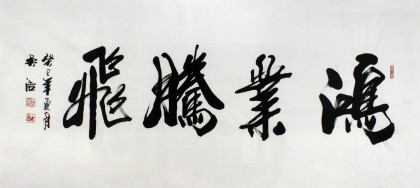 鴻業騰飛
癸巳年夏月